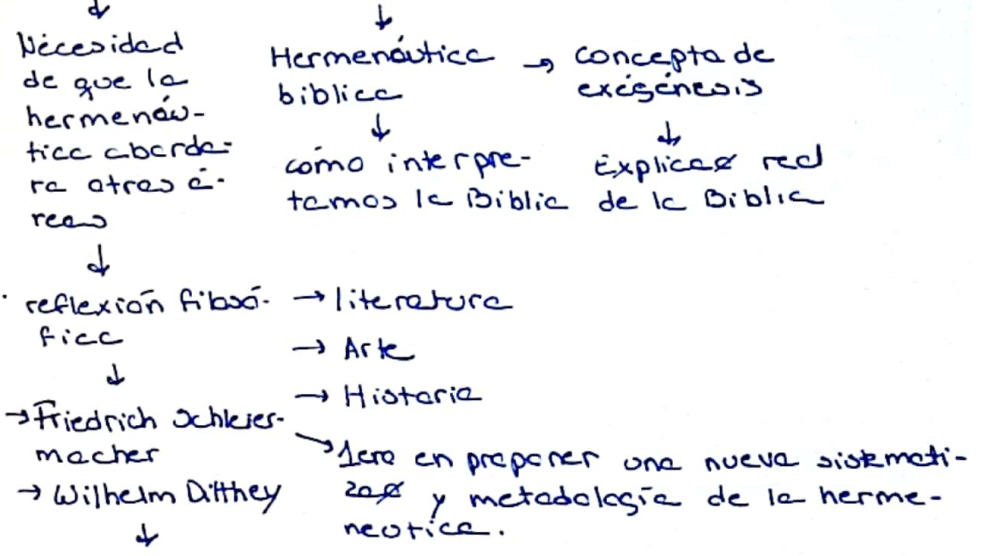 ↓
Necesidad
de que la
hermenéu-
tica aborda-
ra otras á-
reas
↓
reflexión filosó-
fica
↓
→ Friedrich Schleier-
macher
→ Wilhelm Dilthey
↓
↓
Hermenéutica → concepto de
bíblica exégénesis
↓ ↓
cómo interpre- Explicaø real
tamos la Biblia de la Biblia
→ literatura
→ Arte
→ Historia
→ 1ero en proponer una nueva sistemati-
zaø y metodología de la herme-
neutica.